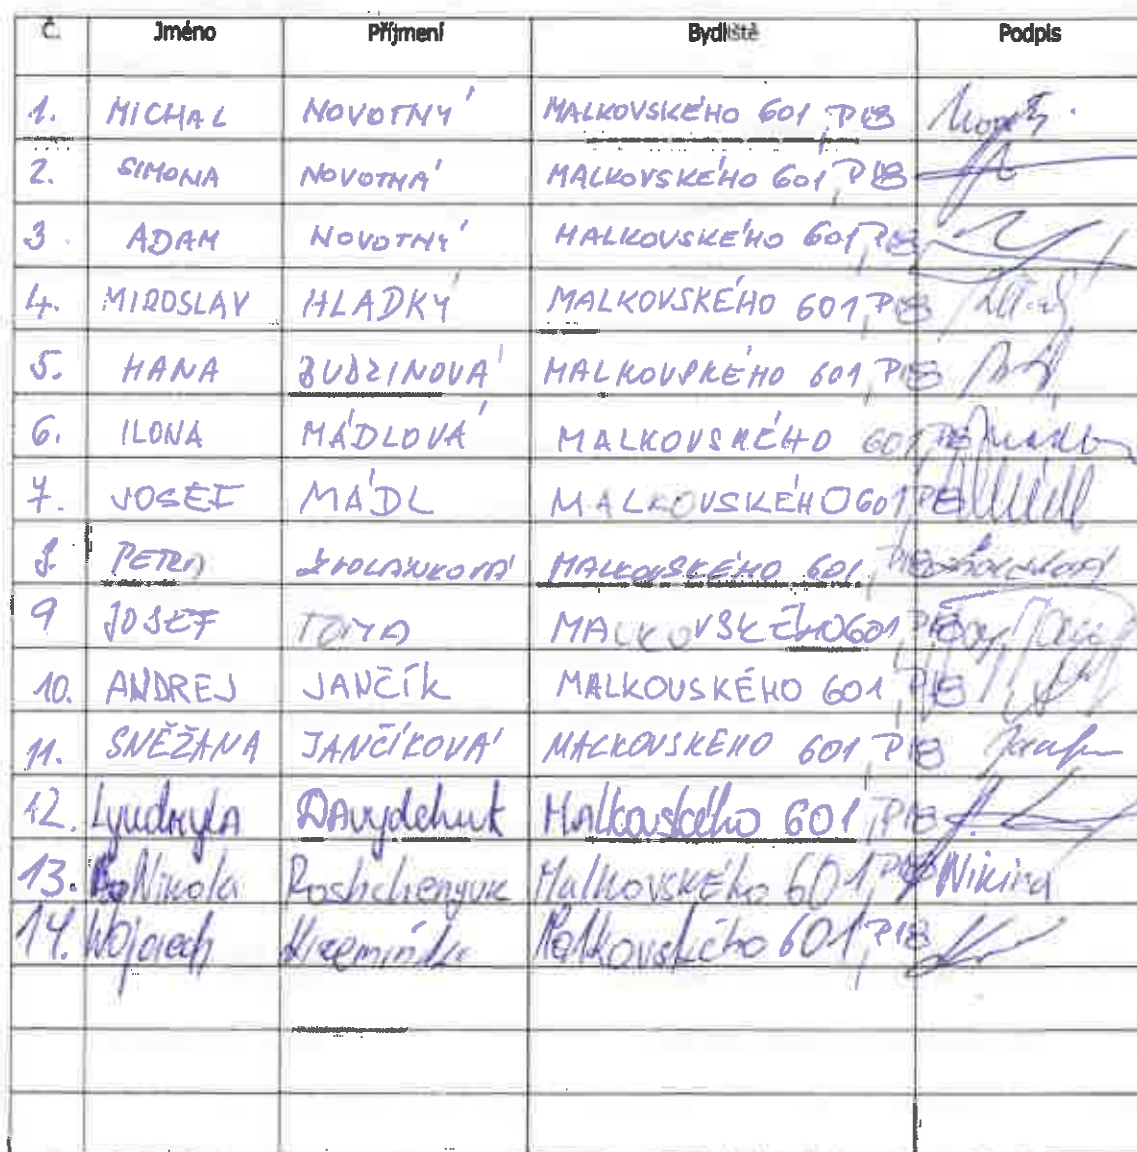 Č. Jméno Příjmení Bydliště Podpis
1. MICHAL NOVOTNÝ MALKOVSKÉHO 601, P18
2. SIMONA NOVOTNÁ MALKOVSKÉHO 601, P18
3. ADAM NOVOTNÝ MALKOVSKÉHO 601, P18
4. MIROSLAV HLADKÝ MALKOVSKÉHO 601, P18
5. HANA BUDZINOVÁ MALKOVSKÉHO 601, P18
6. ILONA MÁDLOVÁ MALKOVSKÉHO 601, P18
7. JOSEF MÁDL MALKOVSKÉHO 601, P18
8. PETRA MALKOVSKÉHO 601,
9 JOSEF TOMA MALKOVSKÉHO 601, P18
10. ANDREJ JANČÍK MALKOVSKÉHO 601, P18
11. SNĚŽANA JANČÍKOVÁ MALKOVSKÉHO 601, P18
12. Lyudmyla DAvydchuk Malkovského 601, P18
13. Nikola Roshchenyuk Malkovského 601, P18
14. Wojciech Malkovského 601, P18